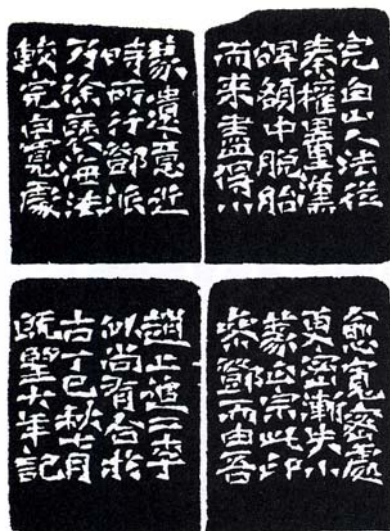 完白山人法從
秦權量漢
碑額中脫胎
而來盡得小
篆遺意近
時所行鄧派
乃徐褎海法
較完白寬處
愈寬密處
更密漸失小
篆正宗此印
參鄧而由吾
趙上追二李
似尚有合於
古丁巳秋七月
既望大年記